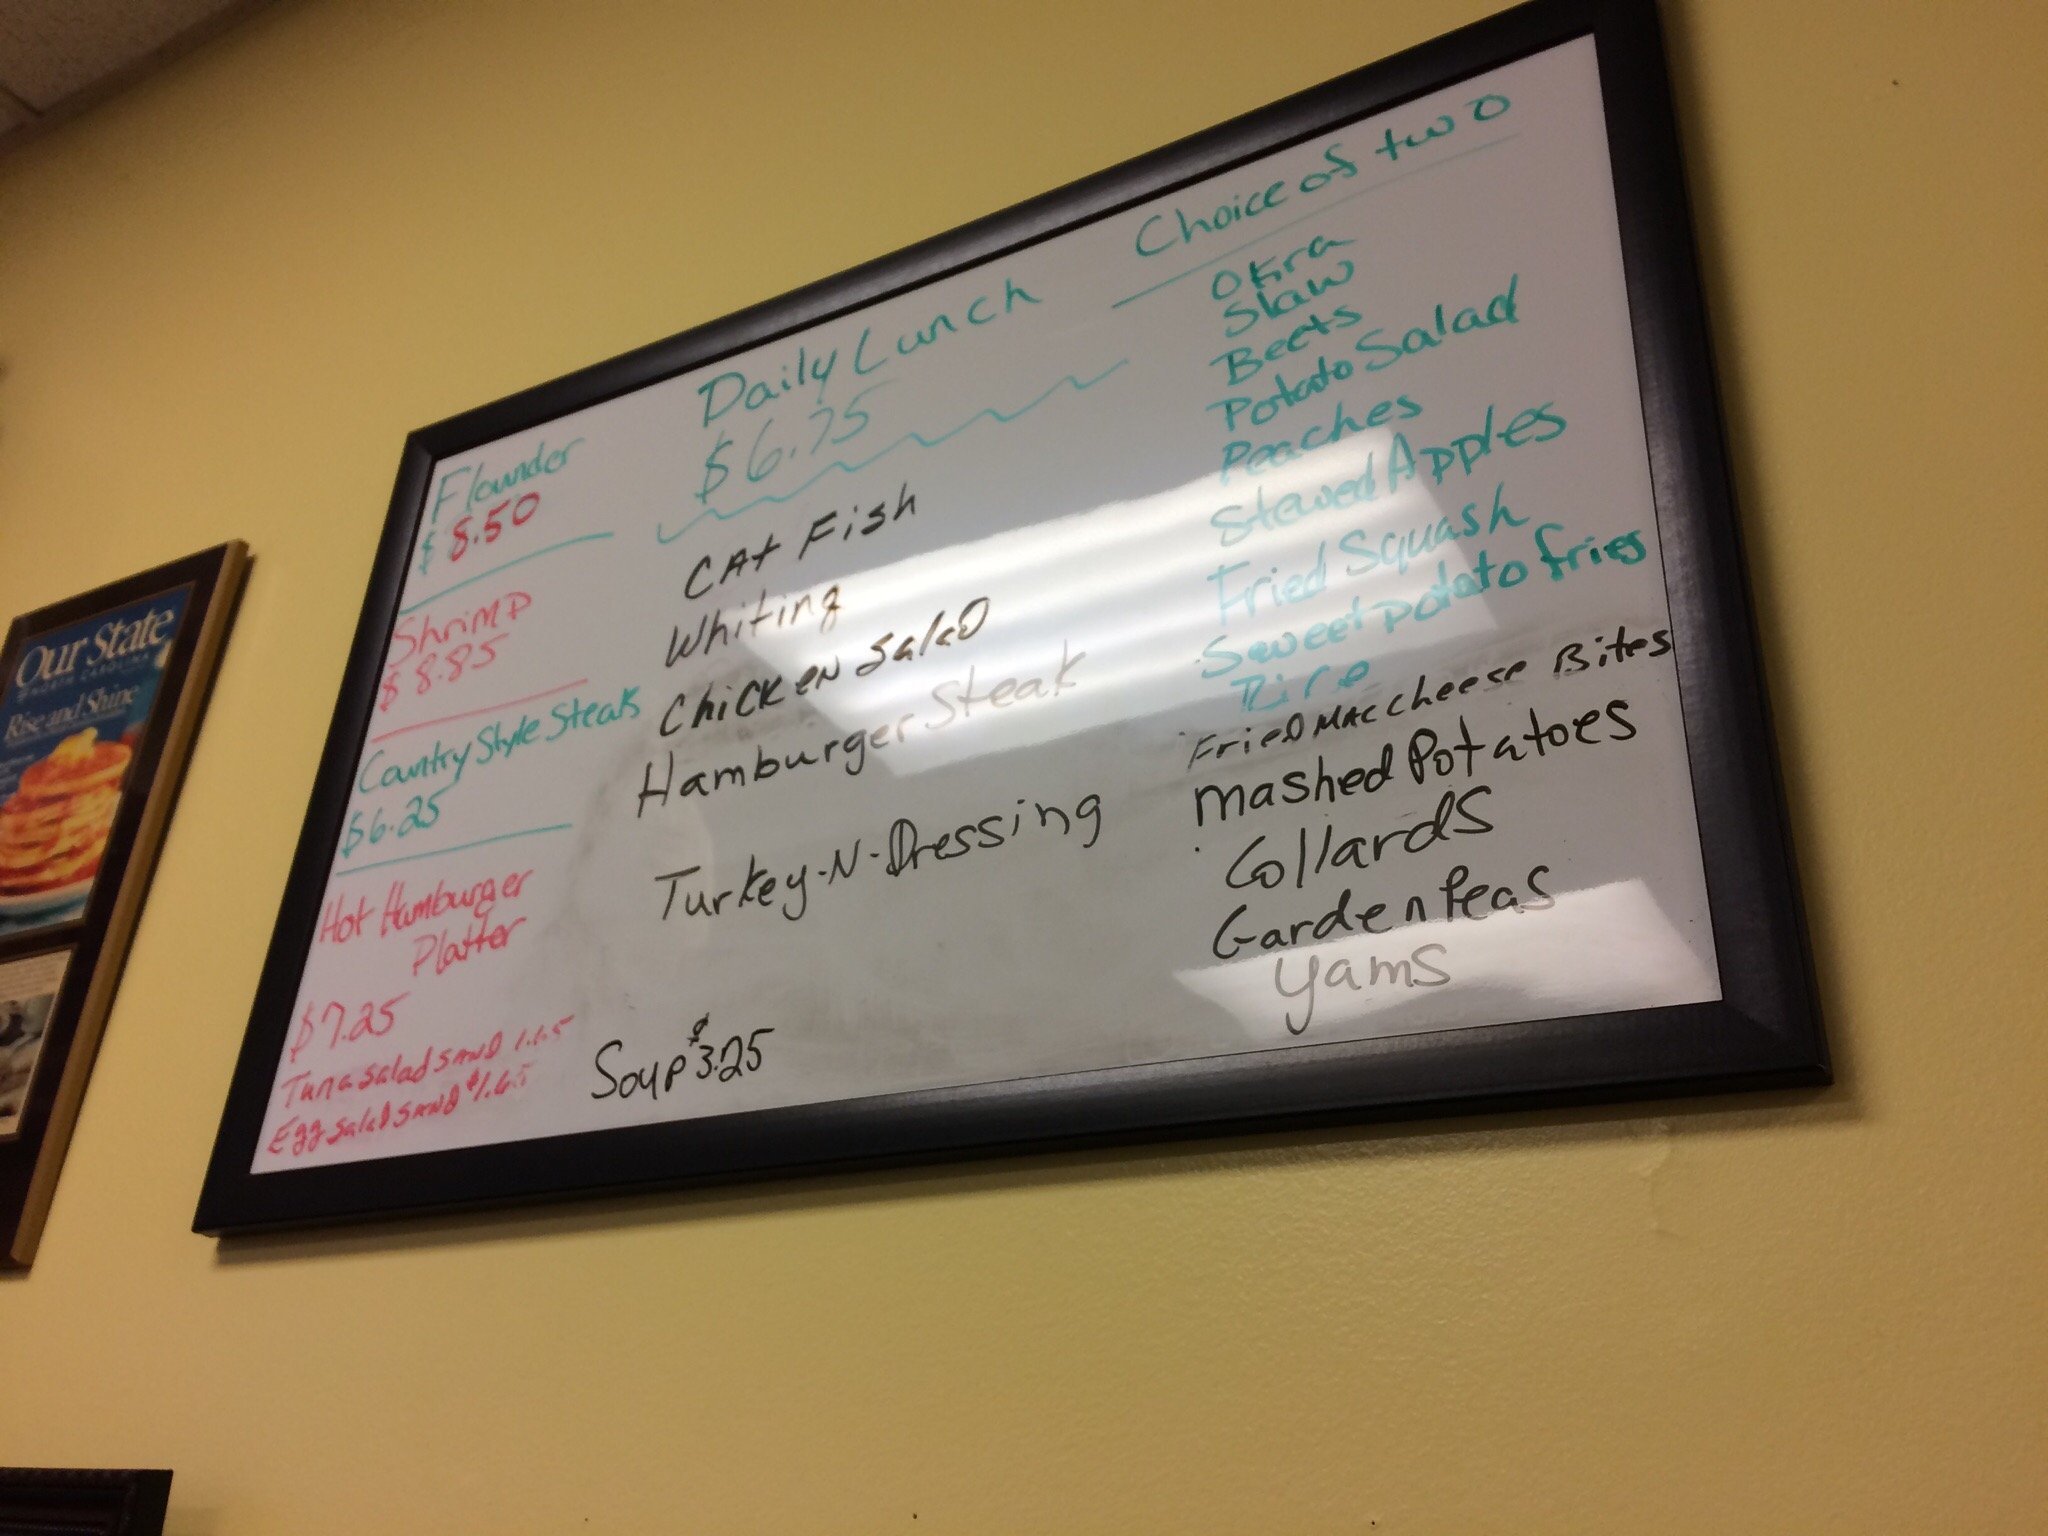 Daily Lunch
$6.75
Cat Fish
Whiting
Chicken Salad
Hamburger Steak
Turkey-N-Dressing
Soup $3.25
Flounder
$8.50
Shrimp
$8.85
Country Style Steak
$6.25
Hot Hamburger
Platter
$7.25
Tuna salad SAND 1.65
Egg salad SAND $1.65
Choice of two
Okra
Slaw
Beets
Potato Salad
Peaches
Stewed Apples
Fried Squash
Sweet potato fries
Rice
Fried Mac Cheese Bites
Mashed Potatoes
Collards
Garden Peas
Yams
Our State
NORTH CAROLINA
Rise and Shine